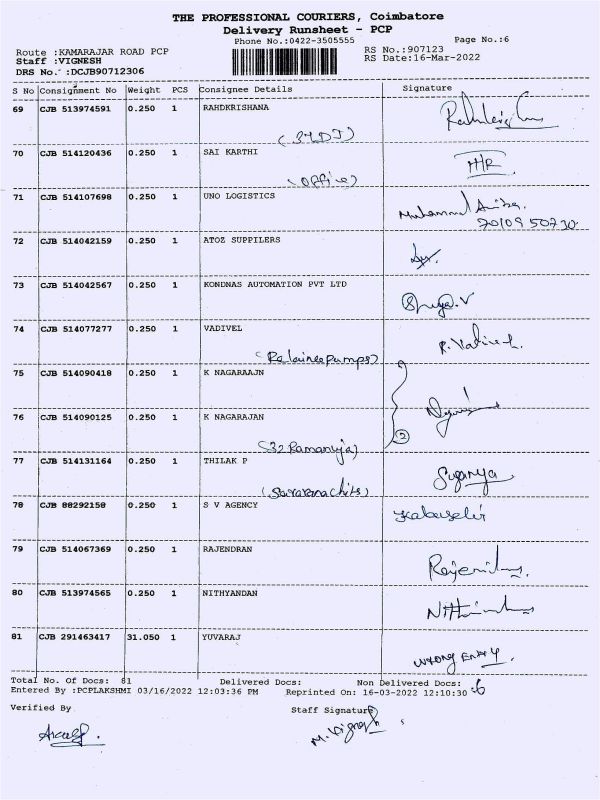 THE PROFESSIONAL COURIERS, Coimbatore
Delivery Runsheet - PCP
Phone No.:0422-3505555 Page No.:6
Route :KAMARAJAR ROAD PCP RS No.:907123
Staff :VIGNESH RS Date:16-Mar-2022
DRS No. :DCJB90712306
S No Consignment No Weight PCS Consignee Details Signature
69 CJB 513974591 0.250 1 RAHDKRISHANA
70 CJB 514120436 0.250 1 SAI KARTHI
(office)
71 CJB 514107698 0.250 1 UNO LOGISTICS
72 CJB 514042159 0.250 1 ATOZ SUPPILERS
73 CJB 514042567 0.250 1 KONDNAS AUTOMATION PVT LTD
74 CJB 514077277 0.250 1 VADIVEL
75 CJB 514090418 0.250 1 K NAGARAAJN
76 CJB 514090125 0.250 1 K NAGARAJAN
(32 Ramanuja) 2
77 CJB 514131164 0.250 1 THILAK P Suganya
78 CJB 88292158 0.250 1 S V AGENCY
79 CJB 514067369 0.250 1 RAJENDRAN
80 CJB 513974565 0.250 1 NITHYANDAN
81 CJB 291463417 31.050 1 YUVARAJ
wrong Entry.
Total No. Of Docs: 81 Delivered Docs: Non Delivered Docs:
Entered By :PCPLAKSHMI 03/16/2022 12:03:36 PM Reprinted On: 16-03-2022 12:10:30
Verified By Staff Signature
M. Vignesh